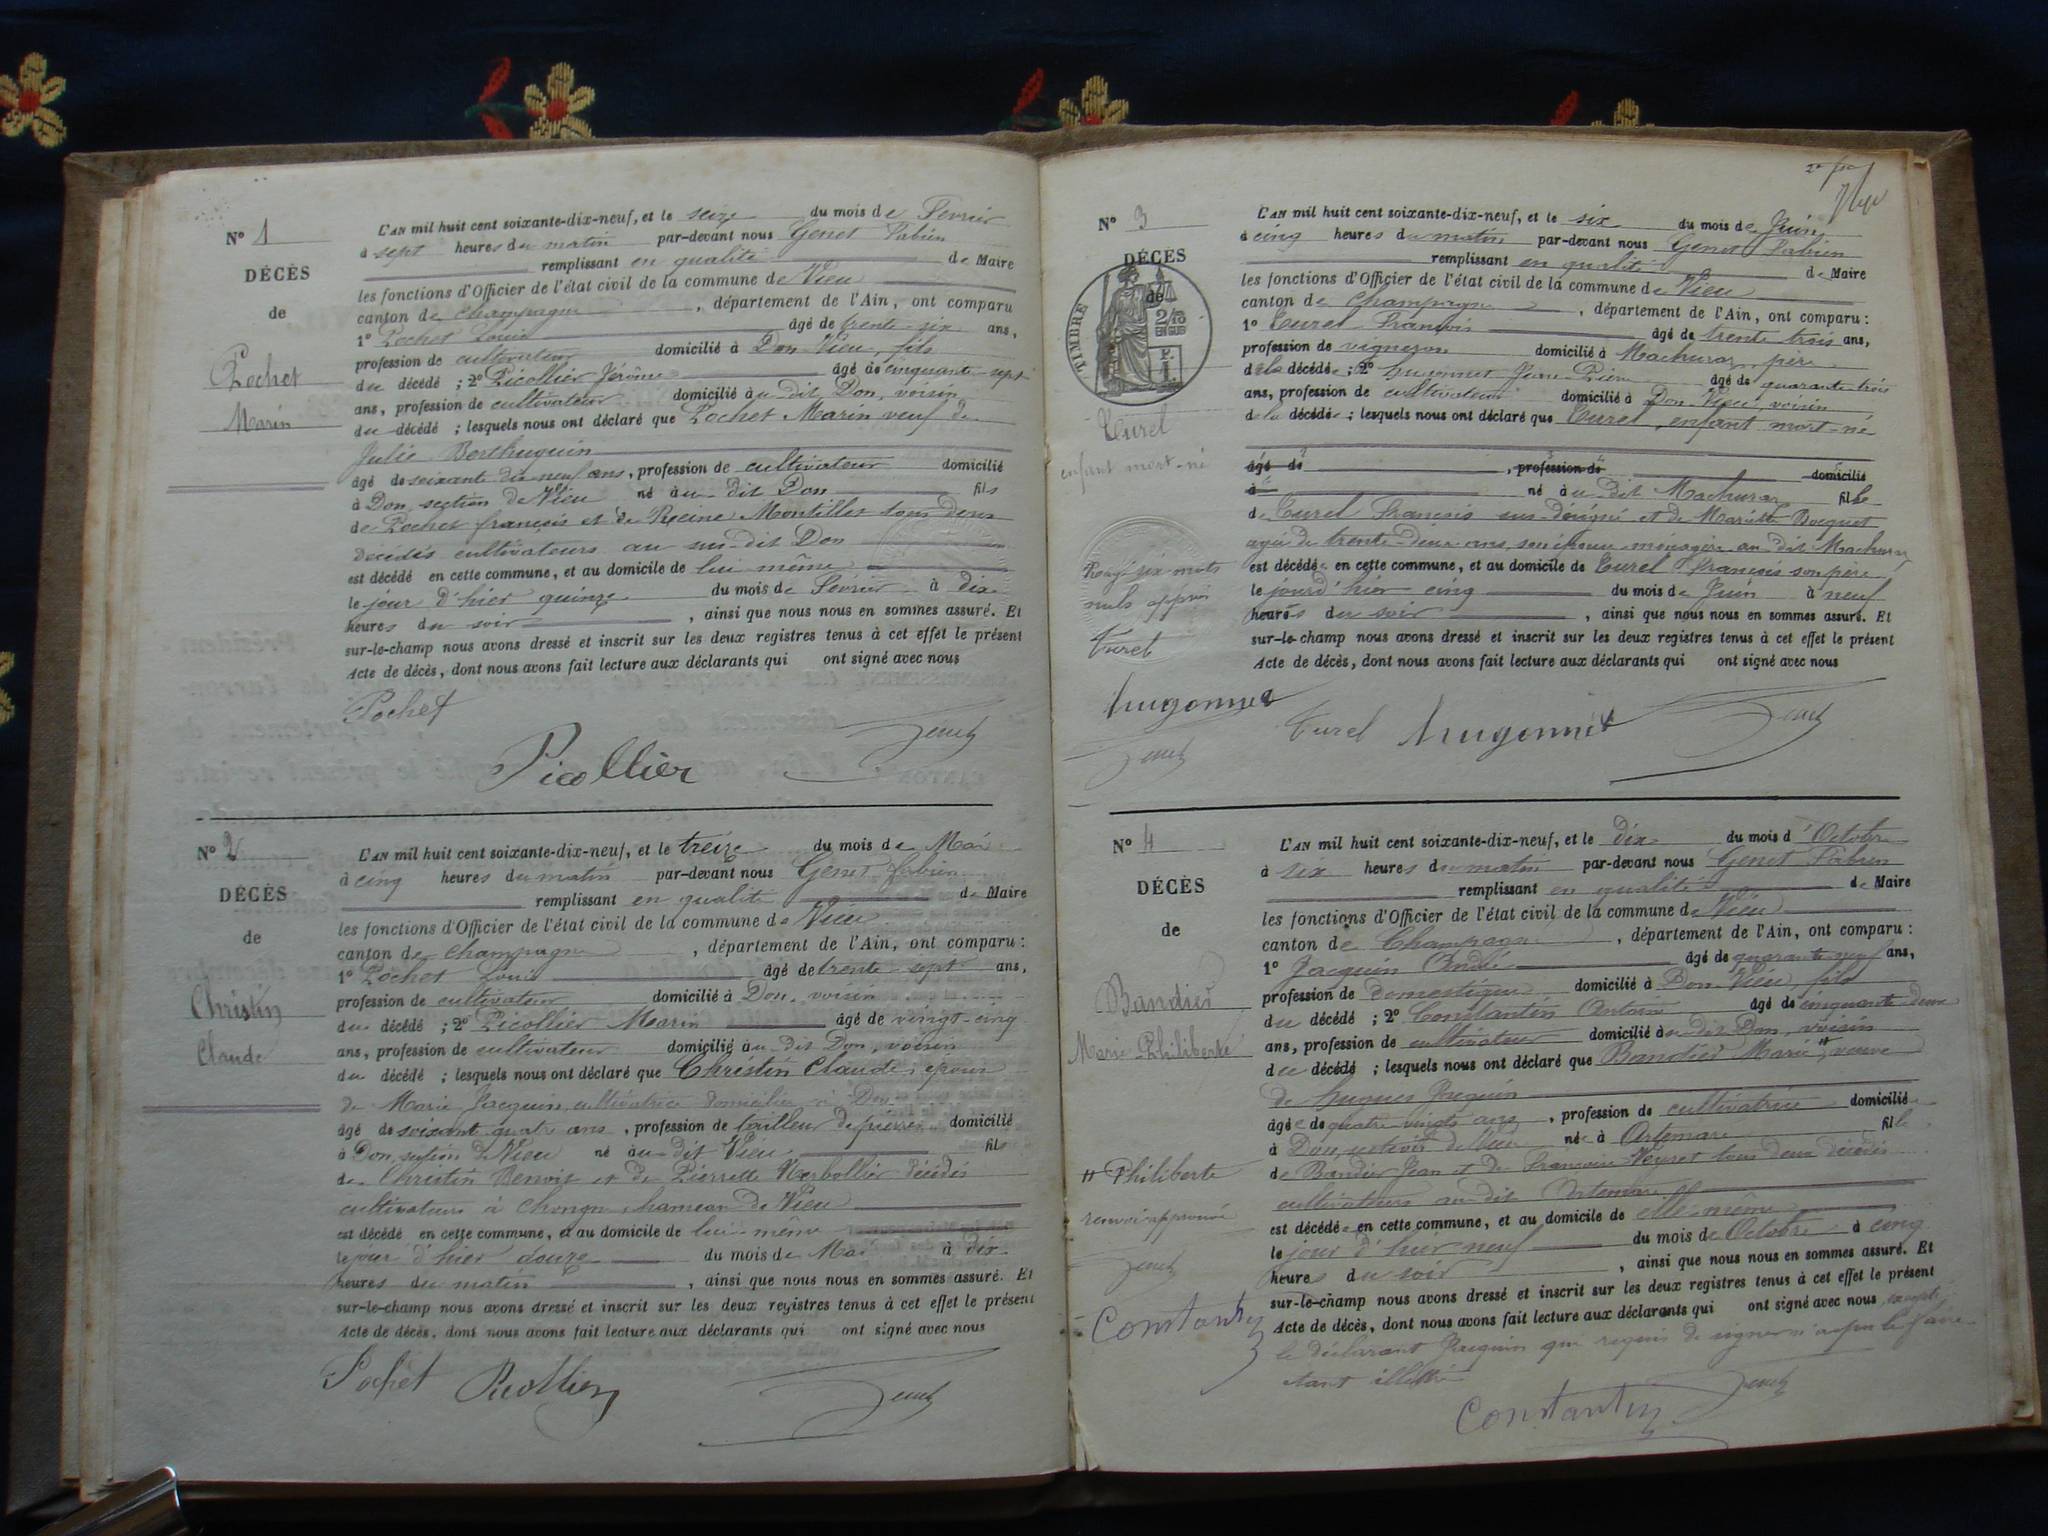 N° 1
DÉCÈS
de
Pochet
Marin
L'AN mil huit cent soixante-dix-neuf, et le seize du mois de Fevrier
à sept heures du matin par-devant nous Genet Fabien
remplissant en qualité de Maire
les fonctions d'Officier de l'état civil de la commune de Vieu
canton de champagne, département de l'Ain, ont comparu
1° Pochet Louis âgé de trente-six ans,
profession de cultivateur domicilié à Don Vieu, fils
du décédé ; 2° Picollier Jérôme âgé de cinquante-sept
ans, profession de cultivateur domicilié au dit Don, voisin
du décédé ; lesquels nous ont déclaré que Pochet Marin veuf de
Julie Berthuguin
âgé de soixante dix neuf ans, profession de cultivateur domicilié
à Don section de Vieu né au dit Don fils
de Pochet françois et de Reine Montillet tous deux
décédés cultivateurs au sus-dit Don
est décédé en cette commune, et au domicile de lui même
le jour d'hier quinze du mois de Février à dix
heures du soir, ainsi que nous nous en sommes assuré. Et
sur-le-champ nous avons dressé et inscrit sur les deux registres tenus à cet effet le présent
Acte de décès, dont nous avons fait lecture aux déclarants qui ont signé avec nous
Pochet
Picollier
Genet
N° 2
DÉCÈS
de
Christin
Claude
L'AN mil huit cent soixante-dix-neuf, et le treize du mois de Mai
à cinq heures du matin par-devant nous Genet Fabien
remplissant en qualité de Maire
les fonctions d'Officier de l'état civil de la commune de Vieu
canton de champagne, département de l'Ain, ont comparu :
1° Pochet Louis âgé de trente-sept ans,
profession de cultivateur domicilié à Don, voisin
du décédé ; 2° Picollier Marin âgé de vingt-cinq
ans, profession de cultivateur domicilié au dit Don, voisin
du décédé ; lesquels nous ont déclaré que Christin Claude, époux
de Marie Jacquin, cultivatrice domiciliée à Don
âgé de soixant quatre ans, profession de tailleur de pierres domicilié
à Don, section de Vieu né au dit Vieu fils
de Christin Benoit et de Pierrette décédés
cultivateurs à Chongn, hameau de Vieu
est décédé en cette commune, et au domicile de lui-même
le jour d'hier douze du mois de Mai à dix
heures du matin, ainsi que nous nous en sommes assuré. Et
sur-le-champ nous avons dressé et inscrit sur les deux registres tenus à cet effet le présent
Acte de décès, dont nous avons fait lecture aux déclarants qui ont signé avec nous
Pochet Picollier Genet
N° 3
DÉCÈS
de
TIMBRE
Turel
enfant mort-né
Rayé six mots
nuls approu
Turel
hugonnet
Genet
L'AN mil huit cent soixante-dix-neuf, et le six du mois de Juin
à cinq heures du matin par-devant nous Genet Fabien
remplissant en qualité de Maire
les fonctions d'Officier de l'état civil de la commune de Vieu
canton de Champagne, département de l'Ain, ont comparu :
1° Turel François âgé de trente trois ans,
profession de vigneron domicilié à Machuraz, père
de la décédée ; 2° hugonnet Jean Pierre âgé de quarante-trois
ans, profession de cultivateur domicilié à Don Vieu, voisin
de la décédée ; lesquels nous ont déclaré que Turel, enfant mort-né
âgé de, profession de domicilié
à né au dit Machuraz fille
de Turel François sus-désigné et de Mariette Bocquet
agée de trente-deux ans, son épouse ménagère au dit Machuraz
est décédée en cette commune, et au domicile de Turel François son père
le jour d'hier cinq du mois de Juin à neuf
heures du soir, ainsi que nous nous en sommes assuré. Et
sur-le-champ nous avons dressé et inscrit sur les deux registres tenus à cet effet le présent
Acte de décès, dont nous avons fait lecture aux déclarants qui ont signé avec nous
Turel hugonnet Genet
N° 4
DÉCÈS
de
Bandier
Marie-Philiberte
# Philiberte
renvoi approuvé
Genet
Constantin
L'AN mil huit cent soixante-dix-neuf, et le dix du mois d'Octobre
à six heures du matin par-devant nous Genet Fabien
remplissant en qualité de Maire
les fonctions d'Officier de l'état civil de la commune de Vieu
canton de Champagne, département de l'Ain, ont comparu :
1° Jacquin André âgé de quarante-neuf ans,
profession de domestique domicilié à Don Vieu, fils
du décédé ; 2° Constantin Antoine âgé de cinquante deux
ans, profession de cultivateur domicilié au dit Don, voisin
du décédé ; lesquels nous ont déclaré que Bandier Marie # veuve
de hugues Jacquin
âgée de quatre-vingts ans, profession de cultivatrice domicilié
à Don, section de Vieu née à Artemare fille
de Bandier Jean et de Françoise Veyret tous deux décédés
cultivateurs au dit Artemare
est décédée en cette commune, et au domicile de elle-même
le jour d'hier neuf du mois de Octobre à cinq
heures du soir, ainsi que nous nous en sommes assuré. Et
sur-le-champ nous avons dressé et inscrit sur les deux registres tenus à cet effet le présent
Acte de décès, dont nous avons fait lecture aux déclarants qui ont signé avec nous excepté
le déclarant Jacquin qui requis de signer n'a pu le faire
étant illettré
Constantin Genet